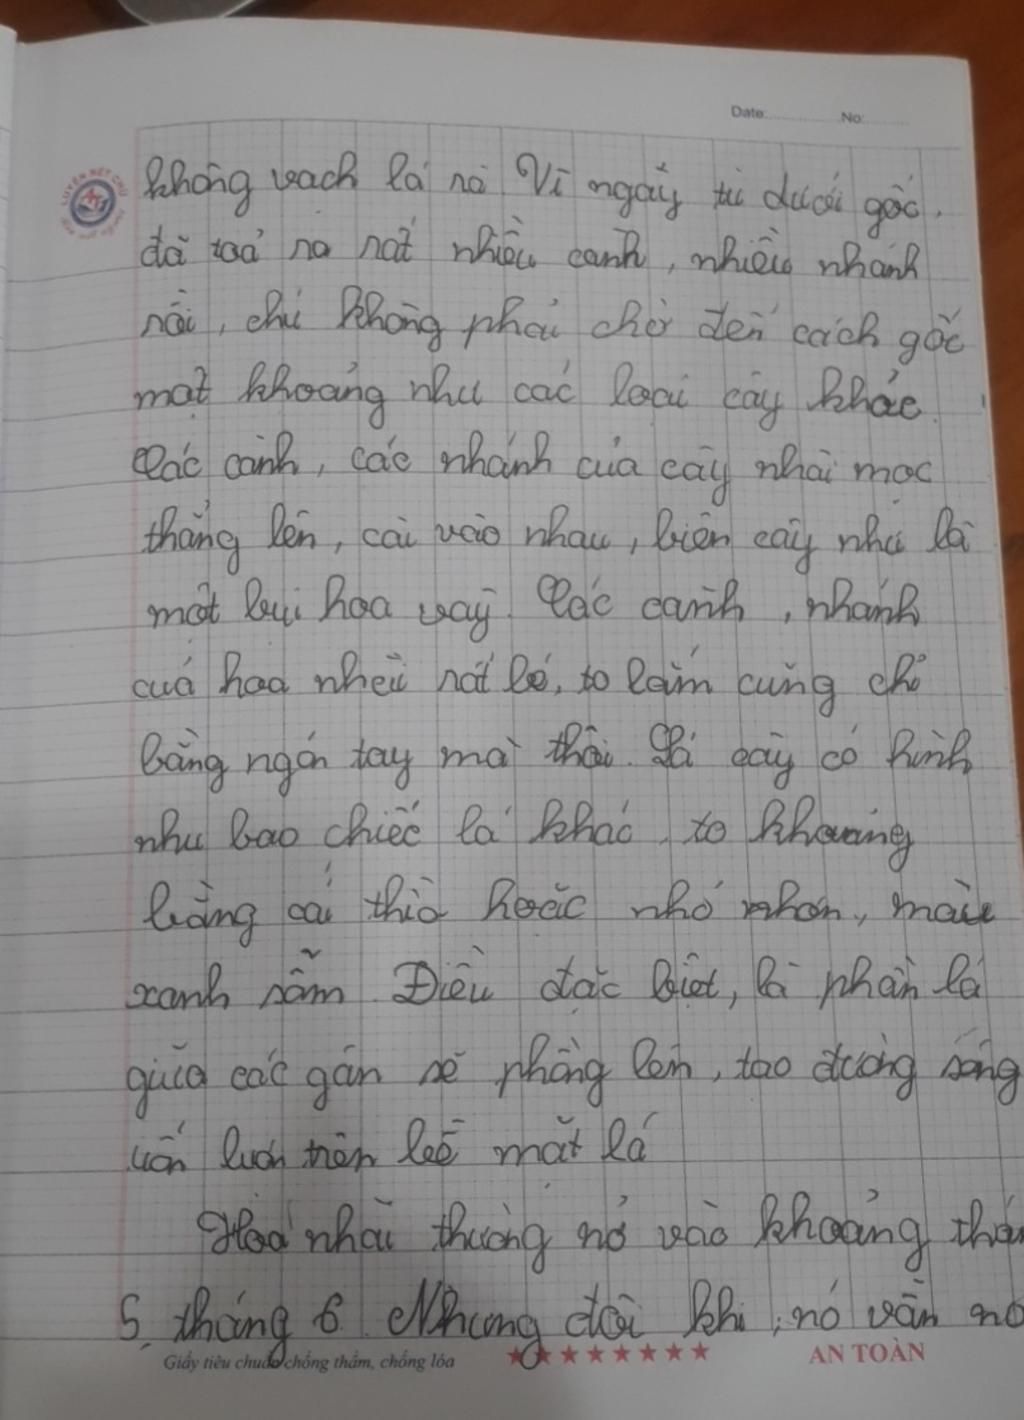 Date: No:
LUYỆN NÉT CHỮ
không vach lá nò Vì ngaỹ tù dưới gốc,
đã toả ra rất nhiều canh, nhiều nhánh
rồi, chí không phải chờ đến cách gốc
một khoảng như các loai cây khác.
Các cành, các nhánh của cây nhài moc
thẳng lên, cài vào nhau, biên cây như là
một bụi hoa vaỹ. Các canh, nhánh
cuả hoa nhèi rất bé, to lắm cũng chỉ
bằng ngón tay mà thôi. Lá cây có hình
như bao chiếc lá khác, to khoảng
bằng cái thìa hoặc nhỏ nhơn, màu
xanh sẫm. Điều đặc biệt, là phần lá
giữa các gân sẽ phồng lên, tạo đường sóng
uốn lượn trên bề mặt lá
Hoa nhài thường nở vào khoảng thán
5, tháng 6. Nhưng đôi khi, nó vẫn nở
Giấy tiêu chuẩn chống thấm, chống lóa ★★★★★★★★ AN TOÀN